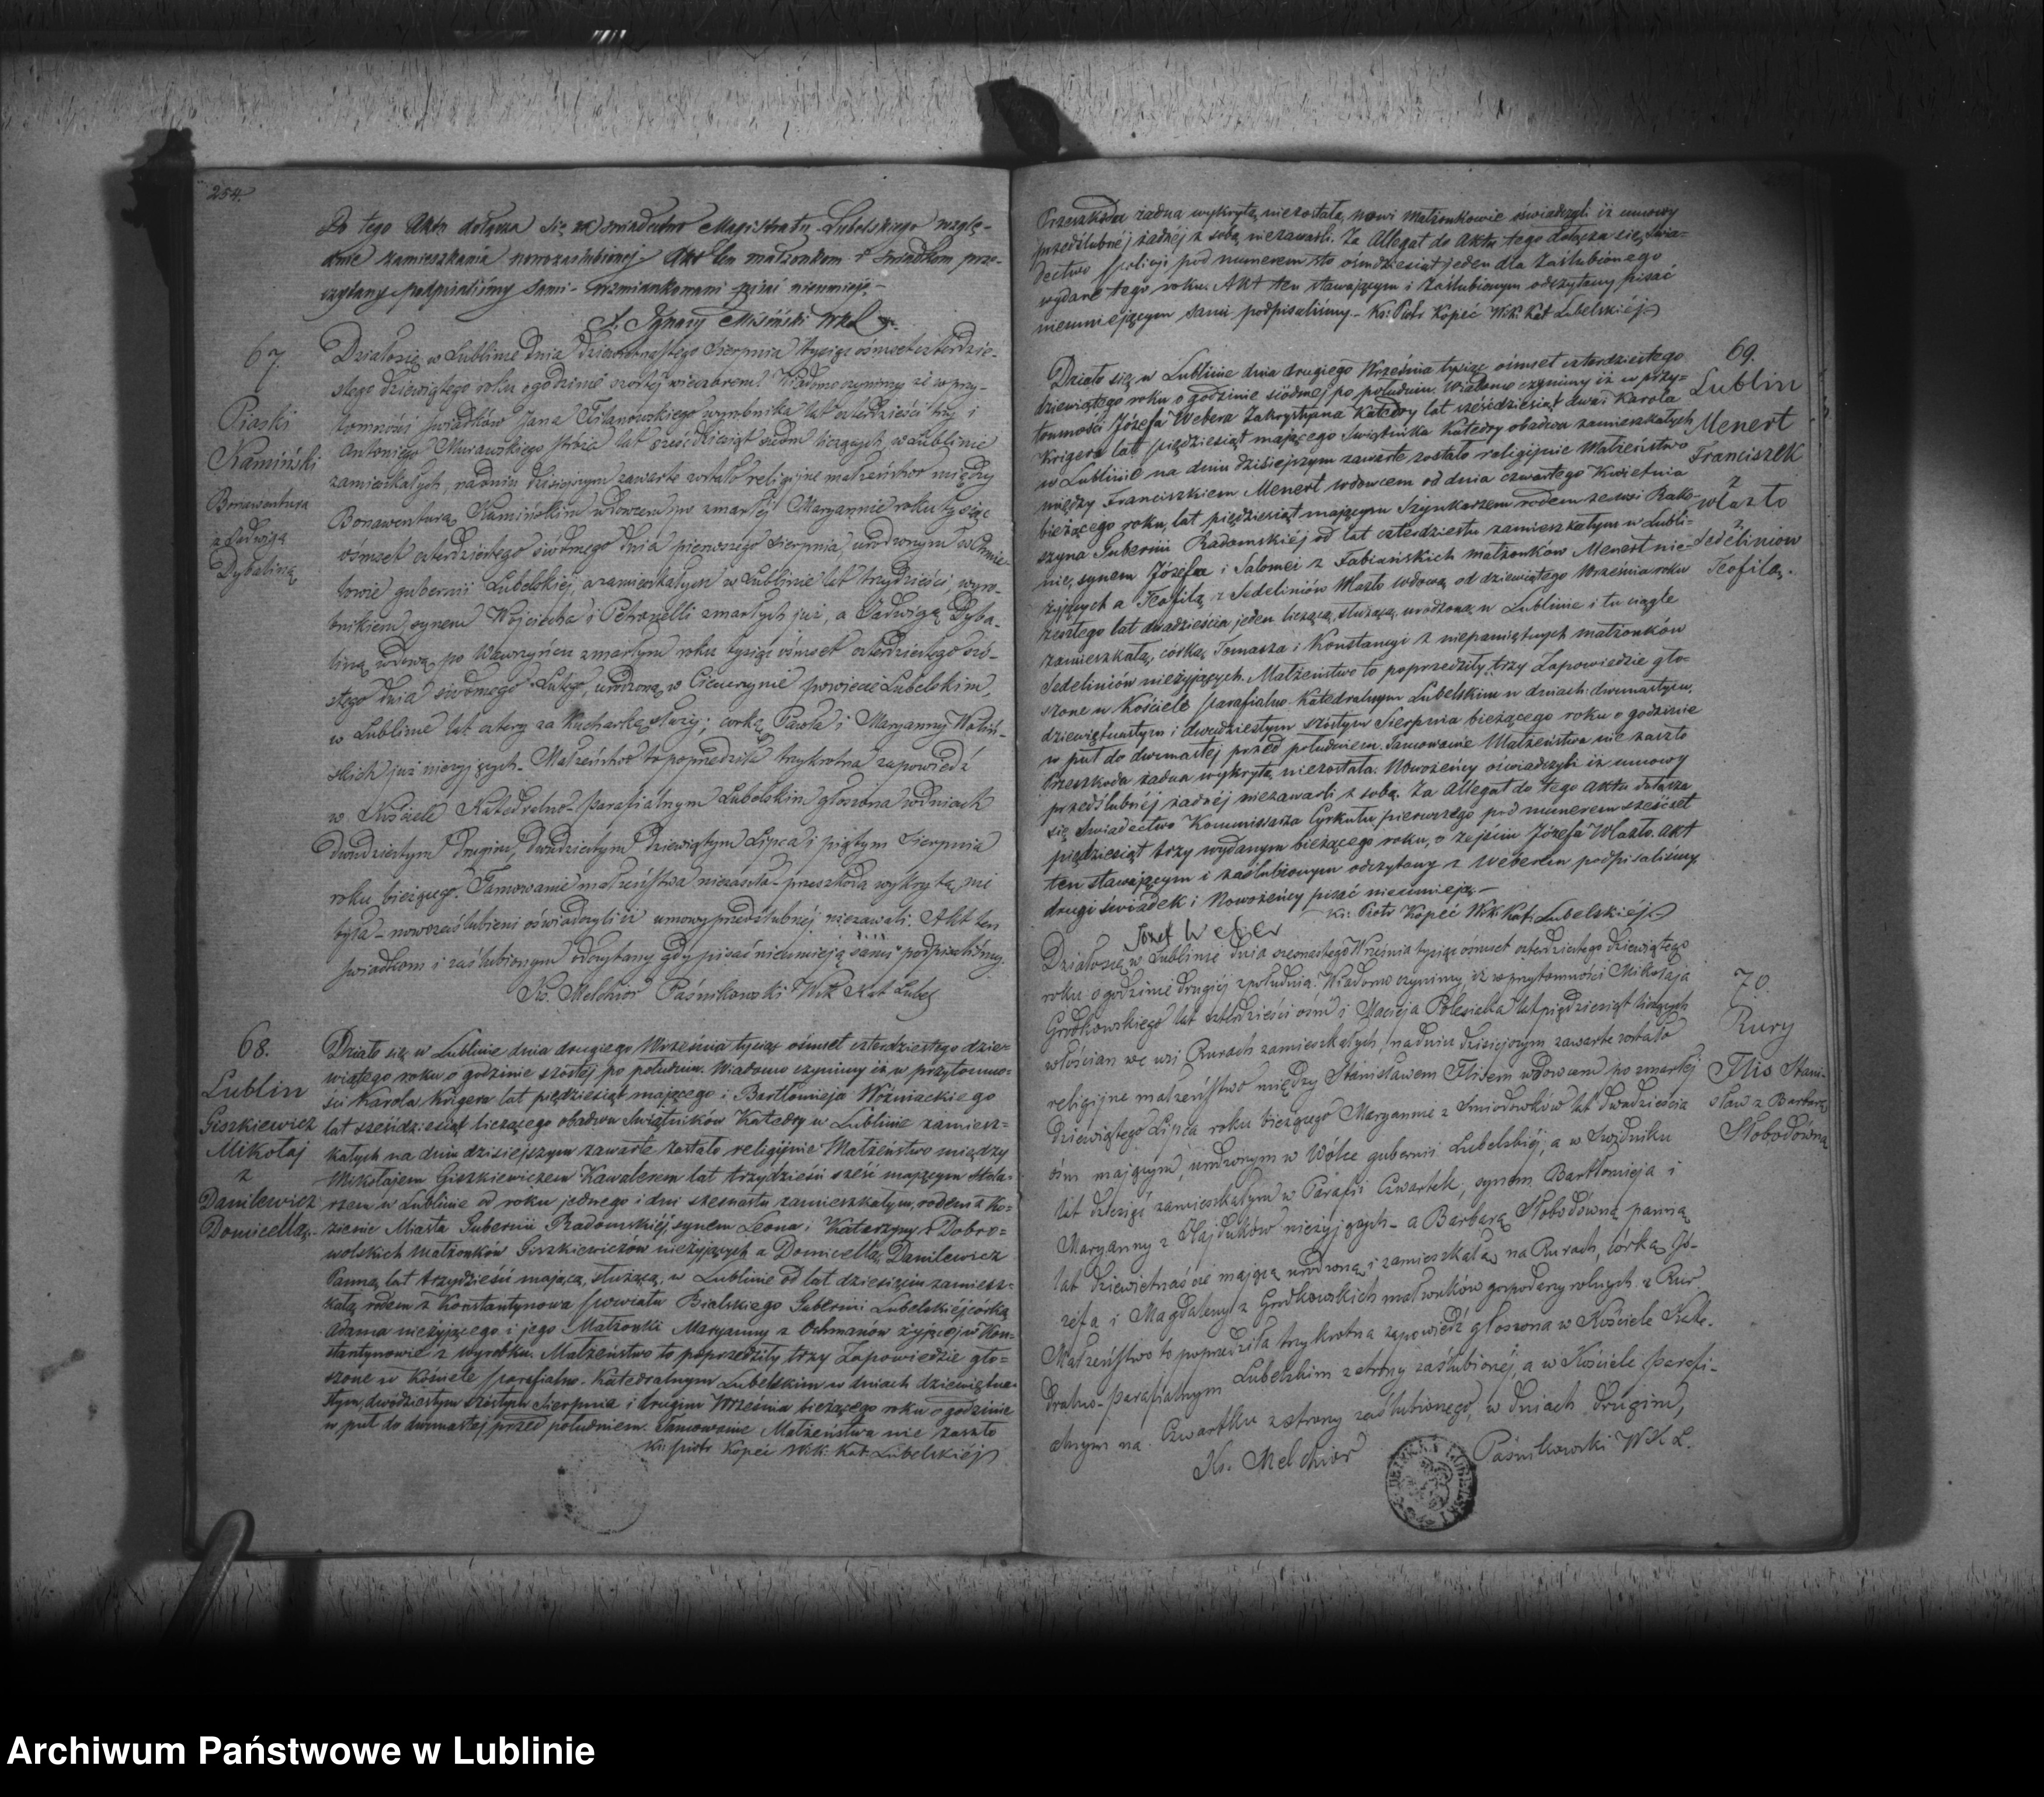 254.
Do tego Aktu dołącza się za świadectwo Magistratu Lubelskiego wzglę-
dnie zamieszkania nowozaślubionej Akt ten małżonkom i świadkom prze-
czytany podpisaliśmy sami - wzmiankowani pisać nieumieją. -
X. Ignacy Misiński WKL
67.
Piaski
Kamiński
Bonawentura
z Jadwigą
Dybaliną
Działo się w Lublinie dnia dziewiętnastego Sierpnia tysiąc ośmset czterdzie-
stego dziewiątego roku o godzinie szóstej wieczorem. Wiadomo czynimy iż w przy-
tomności świadków Jana wyrobnika lat czterdzieści trzy i
Antoniego Murawskiego stróża lat sześćdziesiąt siedm liczących, w Lublinie
zamieszkałych, na dniu dzisiejszym zawarte zostało religijne małżeństwo między
Bonawenturą Kamińskim wdowcem po zmarłej Maryannie roku tysiąc
ośmset czterdziestego siódmego dnia pierwszego Sierpnia, urodzonym w Chmie-
lowie gubernii Lubelskiej, a zamieszkałym w Lublinie lat trzydzieści, wyro-
bnikiem, synem Wojciecha i Petronelli zmarłych już, a Jadwigą Dyba-
liną, wdową po Wawrzyńcu zmarłym roku tysiąc ośmset czterdziestego szó-
stego dnia siódmego Lutego, urodzoną w Ciecierzynie powiecie Lubelskim,
w Lublinie lat cztery za kucharkę służy; córką Pawła i Maryanny Waliń-
skich już nieżyjących - Małżeństwo to poprzedziła trzykrotna zapowiedź
w Kościele Katedralno-parafialnym Lubelskim głoszona w dniach
dwudziestym drugim, dwudziestym dziewiątym Lipca i piątym Sierpnia
roku bieżącego. Tamowanie małżeństwa niezaszło - przeszkoda wykrytą nie
była - nowozaślubieni oświadczyli iż umowy przedślubnej niezawarli. Akt ten
świadkom i zaślubionym odczytany gdy pisać nieumieją sami podpisaliśmy.
Ks. Melchior Paśnikowski Wik Kat Lubel
68.
Lublin
Giszkiewicz
Mikołaj
z
Danilewicz
Domicellą.
Działo się w Lublinie dnia drugiego Września tysiąc ośmset czterdziestego dzie-
wiątego roku o godzinie szóstej po południu. Wiadomo czynimy iż w przytomno-
ści Karola Krigera lat pięćdziesiąt mającego i Bartłomieja Woźniackiego
lat sześćdziesiąt liczącego obudwu Świątników Katedry w Lublinie zamiesz-
kałych na dniu dzisiejszym zawarte zostało religijnie Małżeństwo między
Mikołajem Giszkiewiczem Kawalerem lat trzydzieści sześć mającym Stola-
rzem w Lublinie od roku jednego i dni szesnastu zamieszkałym, rodem z Ko-
zienic Miasta Gubernii Radomskiéj, synem Leona i Katarzyny z Dobro-
wolskich małżonków Giszkiewiczów nieżyjących a Domicellą Danilewicz
Panną lat trzydzieści mającą, służącą, w Lublinie od lat dziesięciu zamiesz-
kałą, rodem z Konstantynowa powiatu Bialskiego Gubernii Lubelskiéj córką
Adama nieżyjącego i jego Małżonki Maryanny z Ochmanów żyjącéj w Kon-
stantynowie z wyrobku. Małżeństwo to poprzedziły trzy Zapowiedzie gło-
szone w Kościele parafialno-Katedralnym Lubelskim w dniach dziewiętna-
stym, dwódziestym szóstym Sierpnia i drugim Września bieżącego roku o godzinie
w puł do dwunastej przed południem. Tamowanie Małżeństwa nie zaszło
Ks: Piotr Kopeć Wik: Kat: Lubelskiéj
Przeszkoda żadna wykrytą niezostała, nowi małżonkowie oświadczyli iż umowy
przedślubnéj żadnéj z sobą niezawarli. Za Allegat do Aktu tego dołącza się świa-
dectwo policyi pod numerem sto ośmdziesiąt jeden dla Zaślubionego
wydane tego roku. Akt ten stawającym i Zaślubionym odczytany pisać
nieumiejącym sami podpisaliśmy. - Ks: Piotr Kopeć Wik: Kat Lubelskiéj
69.
Lublin
Menert
Franciszek
z
Własto
z
Sedeliniów
Teofilą.
Działo się w Lublinie dnia drugiego Września tysiąc ośmset czterdziestego
dziewiątego roku o godzinie siódmej po południu. Wiadomo czynimy iż w przy-
tomności Józefa Webera Zakrystyana Katedry lat sześćdziesiąt dwa i Karola
Krigera lat pięćdziesiąt mającego Świątnika Katedry obudwu zamieszkałych
w Lublinie na dniu dzisiejszym zawarte zostało religijnie Małżeństwo
między Franciszkiem Menert wdowcem od dnia czwartego Kwietnia
bieżącego roku, lat pięćdziesiąt mającym Szynkarzem rodem ze wsi Rako-
szyna Gubernii Radomskiéj od lat czterdziestu zamieszkałym w Lubli-
nie, synem Józefa i Salomei z Fabiańskich małżonków Menert nie-
żyjących a Teofilą z Sedeliniów Własto wdową od dziewiątego Września roku
zeszłego lat dwadzieścia jeden liczącą, służącą, urodzoną w Lublinie i tu ciągle
zamieszkałą, córką Tomasza i Konstancyi z niepamiętnych małżonków
Sedeliniów nieżyjących. Małżeństwo to poprzedziły trzy Zapowiedzie gło-
szone w Kościele parafialno-Katedralnym Lubelskim w dniach: dwunastym,
dziewiętnastym i dwudziestym szóstym Sierpnia bieżącego roku o godzinie
w puł do dwunastej przed południem. Tamowanie Małżeństwa nie zaszło
Przeszkoda żadna wykrytą niezostała. Nowożeńcy oświadczyli iż umowy
przedślubnéj żadnéj niezawarli z sobą. Za Allegat do tego aktu dołącza
się świadectwo Kommissarza Cyrkułu pierwszego pod numerem sześćset
pięćdziesiąt trzy wydanym bieżącego roku, o zejściu Józefa Własto. Akt
ten stawającym i zaślubionym odczytany z Weberem podpisaliśmy,
drugi świadek i Nowożeńcy pisać nieumieją. -
Ks: Piotr Kopeć Wik: Kat: Lubelskiéj
Jozef Weber
70.
Rury
Flis Stani-
sław z Barbarą
Słobodówną
Działo się w Lublinie dnia szesnastego Września tysiąc ośmset czterdziestego dziewiątego
roku o godzinie drugiéj z południa. Wiadomo czynimy, iż w przytomności Mikołaja
Grodkowskiego lat czterdzieści ośm i Macieja Polesiaka lat pięćdziesiąt liczących
włościan we wsi Rurach zamieszkałych, na dniu dzisiejszym zawarte zostało
religijne małżeństwo między Stanisławem Flisem wdowcem po zmarłej
dziewiątego Lipca roku bieżącego Maryannie z Smiodowków lat dwadzieścia
ośm mającym, urodzonym w Wólce gubernii Lubelskiéj, a w Świdniku
lat dziesięć zamieszkałym w Parafii Czwartek, synem Bartłomieja i
Maryanny z Hajduków nieżyjących - a Barbarą Słobodówną panną
lat dziewiętnaście mającą urodzoną i zamieszkałą na Rurach, córką Jó-
zefa i Magdaleny z Grodkowskich małżonków gospodarzy rolnych z Rur
Małżeństwo to poprzedziła trzykrotna zapowiedź głoszona w Kościele Kate-
dralno-parafialnym Lubelskim z strony zaślubionéj, a w Kościele parafi-
alnym na Czwartku z strony zaślubionego, w dniach drugim,
Ks. Melchior Paśnikowski WKL.
Archiwum Państwowe w Lublinie